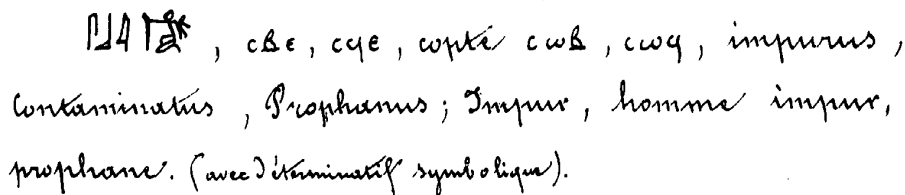 , ⲥⲃⲉ, ⲥϥⲉ, copte ⲥⲱⲃ, ⲥⲱϥ, impurus,
contaminatus, Prophanus; Impur, homme impur,
prophane. (avec déterminatif symbolique).